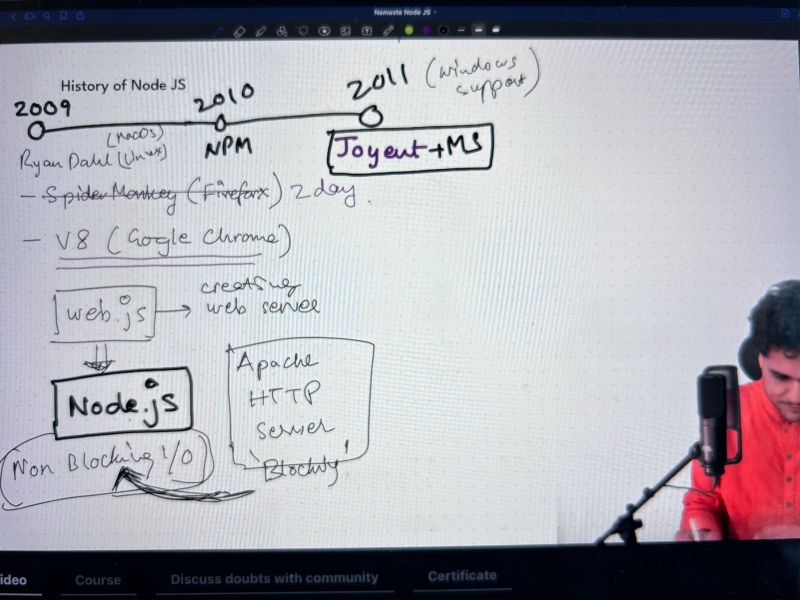 Namaste Node JS
History of Node JS
2009
2010
2011
(windows support)
(MacOS)
Ryan Dahl (Linux)
NPM
Joyent + MS
- Spider Monkey (Firefox) 2 day.
- V8 (Google Chrome)
web.js → creating
web server
Node.js
Apache
HTTP
Server
'Blocking'
Non Blocking I/O
ideo
Course
Discuss doubts with community
Certificate